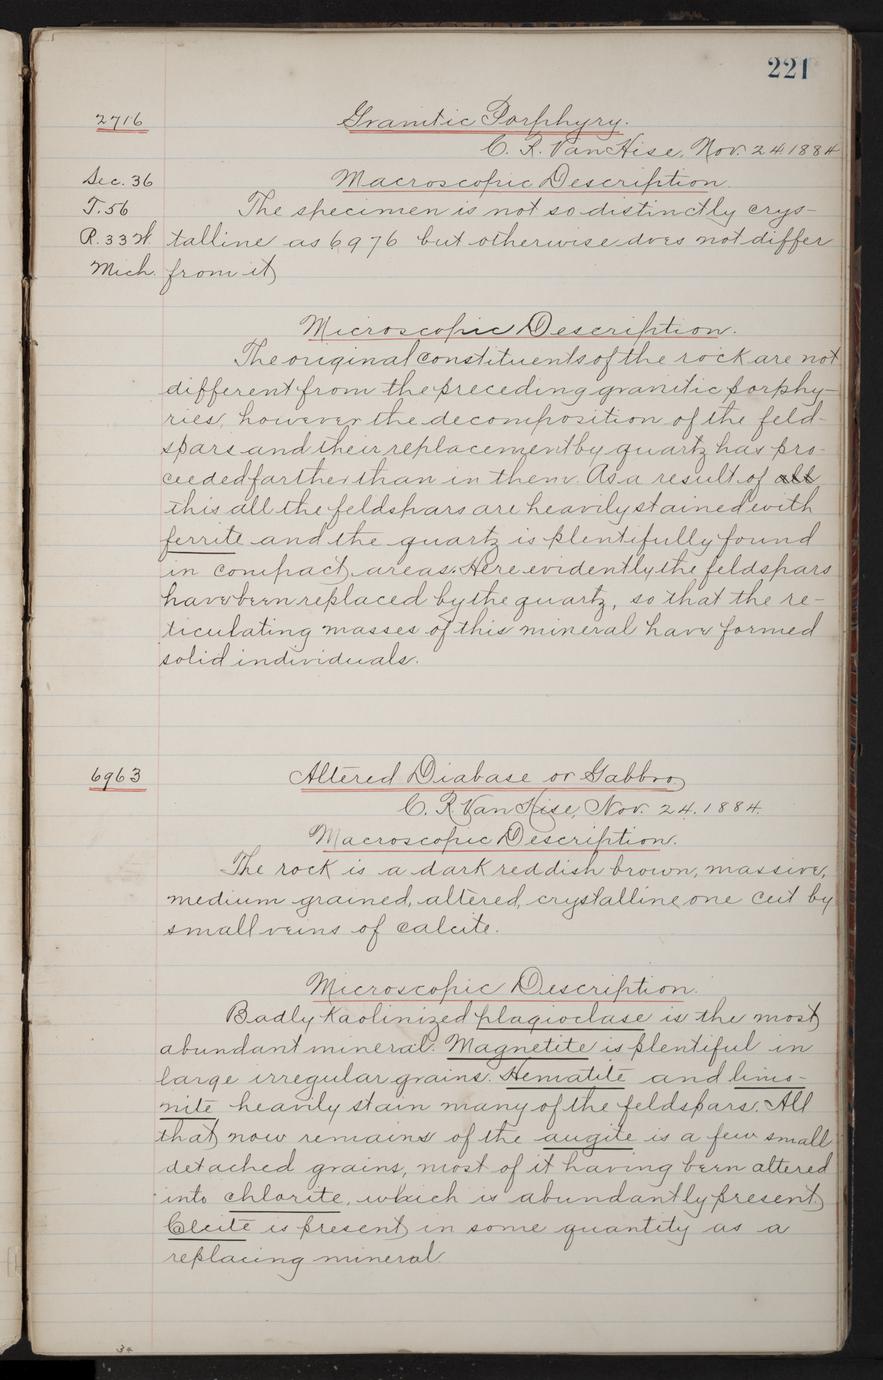 221
2716
Granitic Porphyry.
C. R. Van Hise, Nov. 24. 1884
Sec. 36
Macroscopic Description.
T. 56
The specimen is not so distinctly crys-
R. 33 W.
talline as 6976 but otherwise does not differ
Mich.
from it
Microscopic Description.
The original constituents of the rock are not
different from the preceding granitic porphy-
ries, however the decomposition of the feld-
spars and their replacement by quartz has pro-
ceeded farther than in them. As a result of all
this all the feldspars are heavily stained with
ferrite and the quartz is plentifully found
in compact areas. Here evidently the feldspars
have been replaced by the quartz, so that the re-
ticulating masses of this mineral have formed
solid individuals.
6963
Altered Diabase or Gabbro
C. R. Van Hise, Nov. 24. 1884.
Macroscopic Description.
The rock is a dark reddish brown, massive,
medium grained, altered, crystalline one cut by
small veins of calcite.
Microscopic Description.
Badly kaolinized plagioclase is the most
abundant mineral. Magnetite is plentiful in
large irregular grains. Hematite and limo-
nite heavily stain many of the feldspars. All
that now remains of the augite is a few small
detached grains, most of it having been altered
into chlorite, which is abundantly present.
Clcite is present in some quantity as a
replacing mineral.